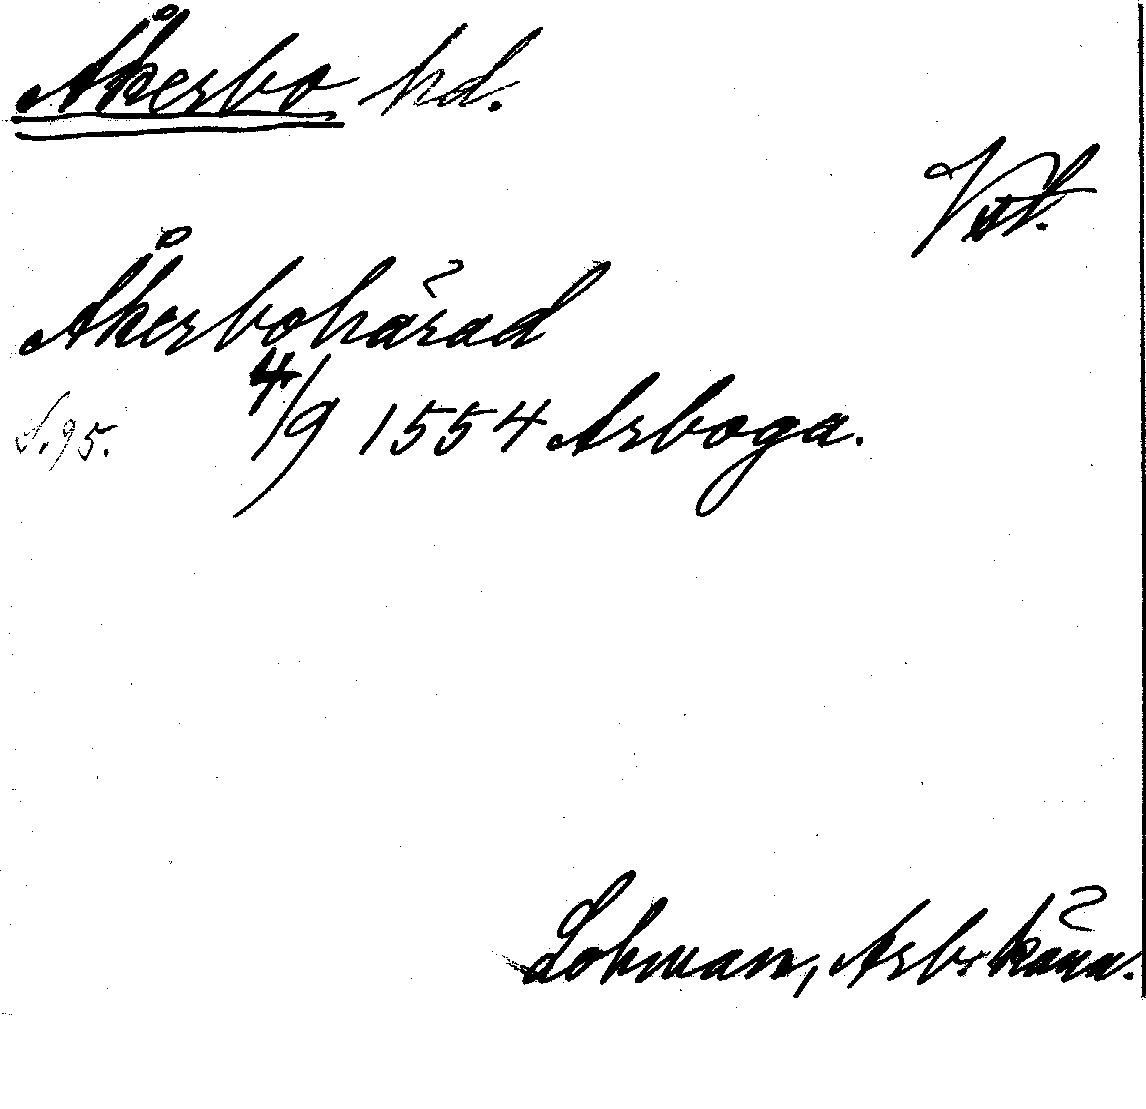 Åkerbo hd.
Vstl.
Åkerbohärad
S. 95. 4/9 1554 Arboga.
Lohman, Arb. känn.